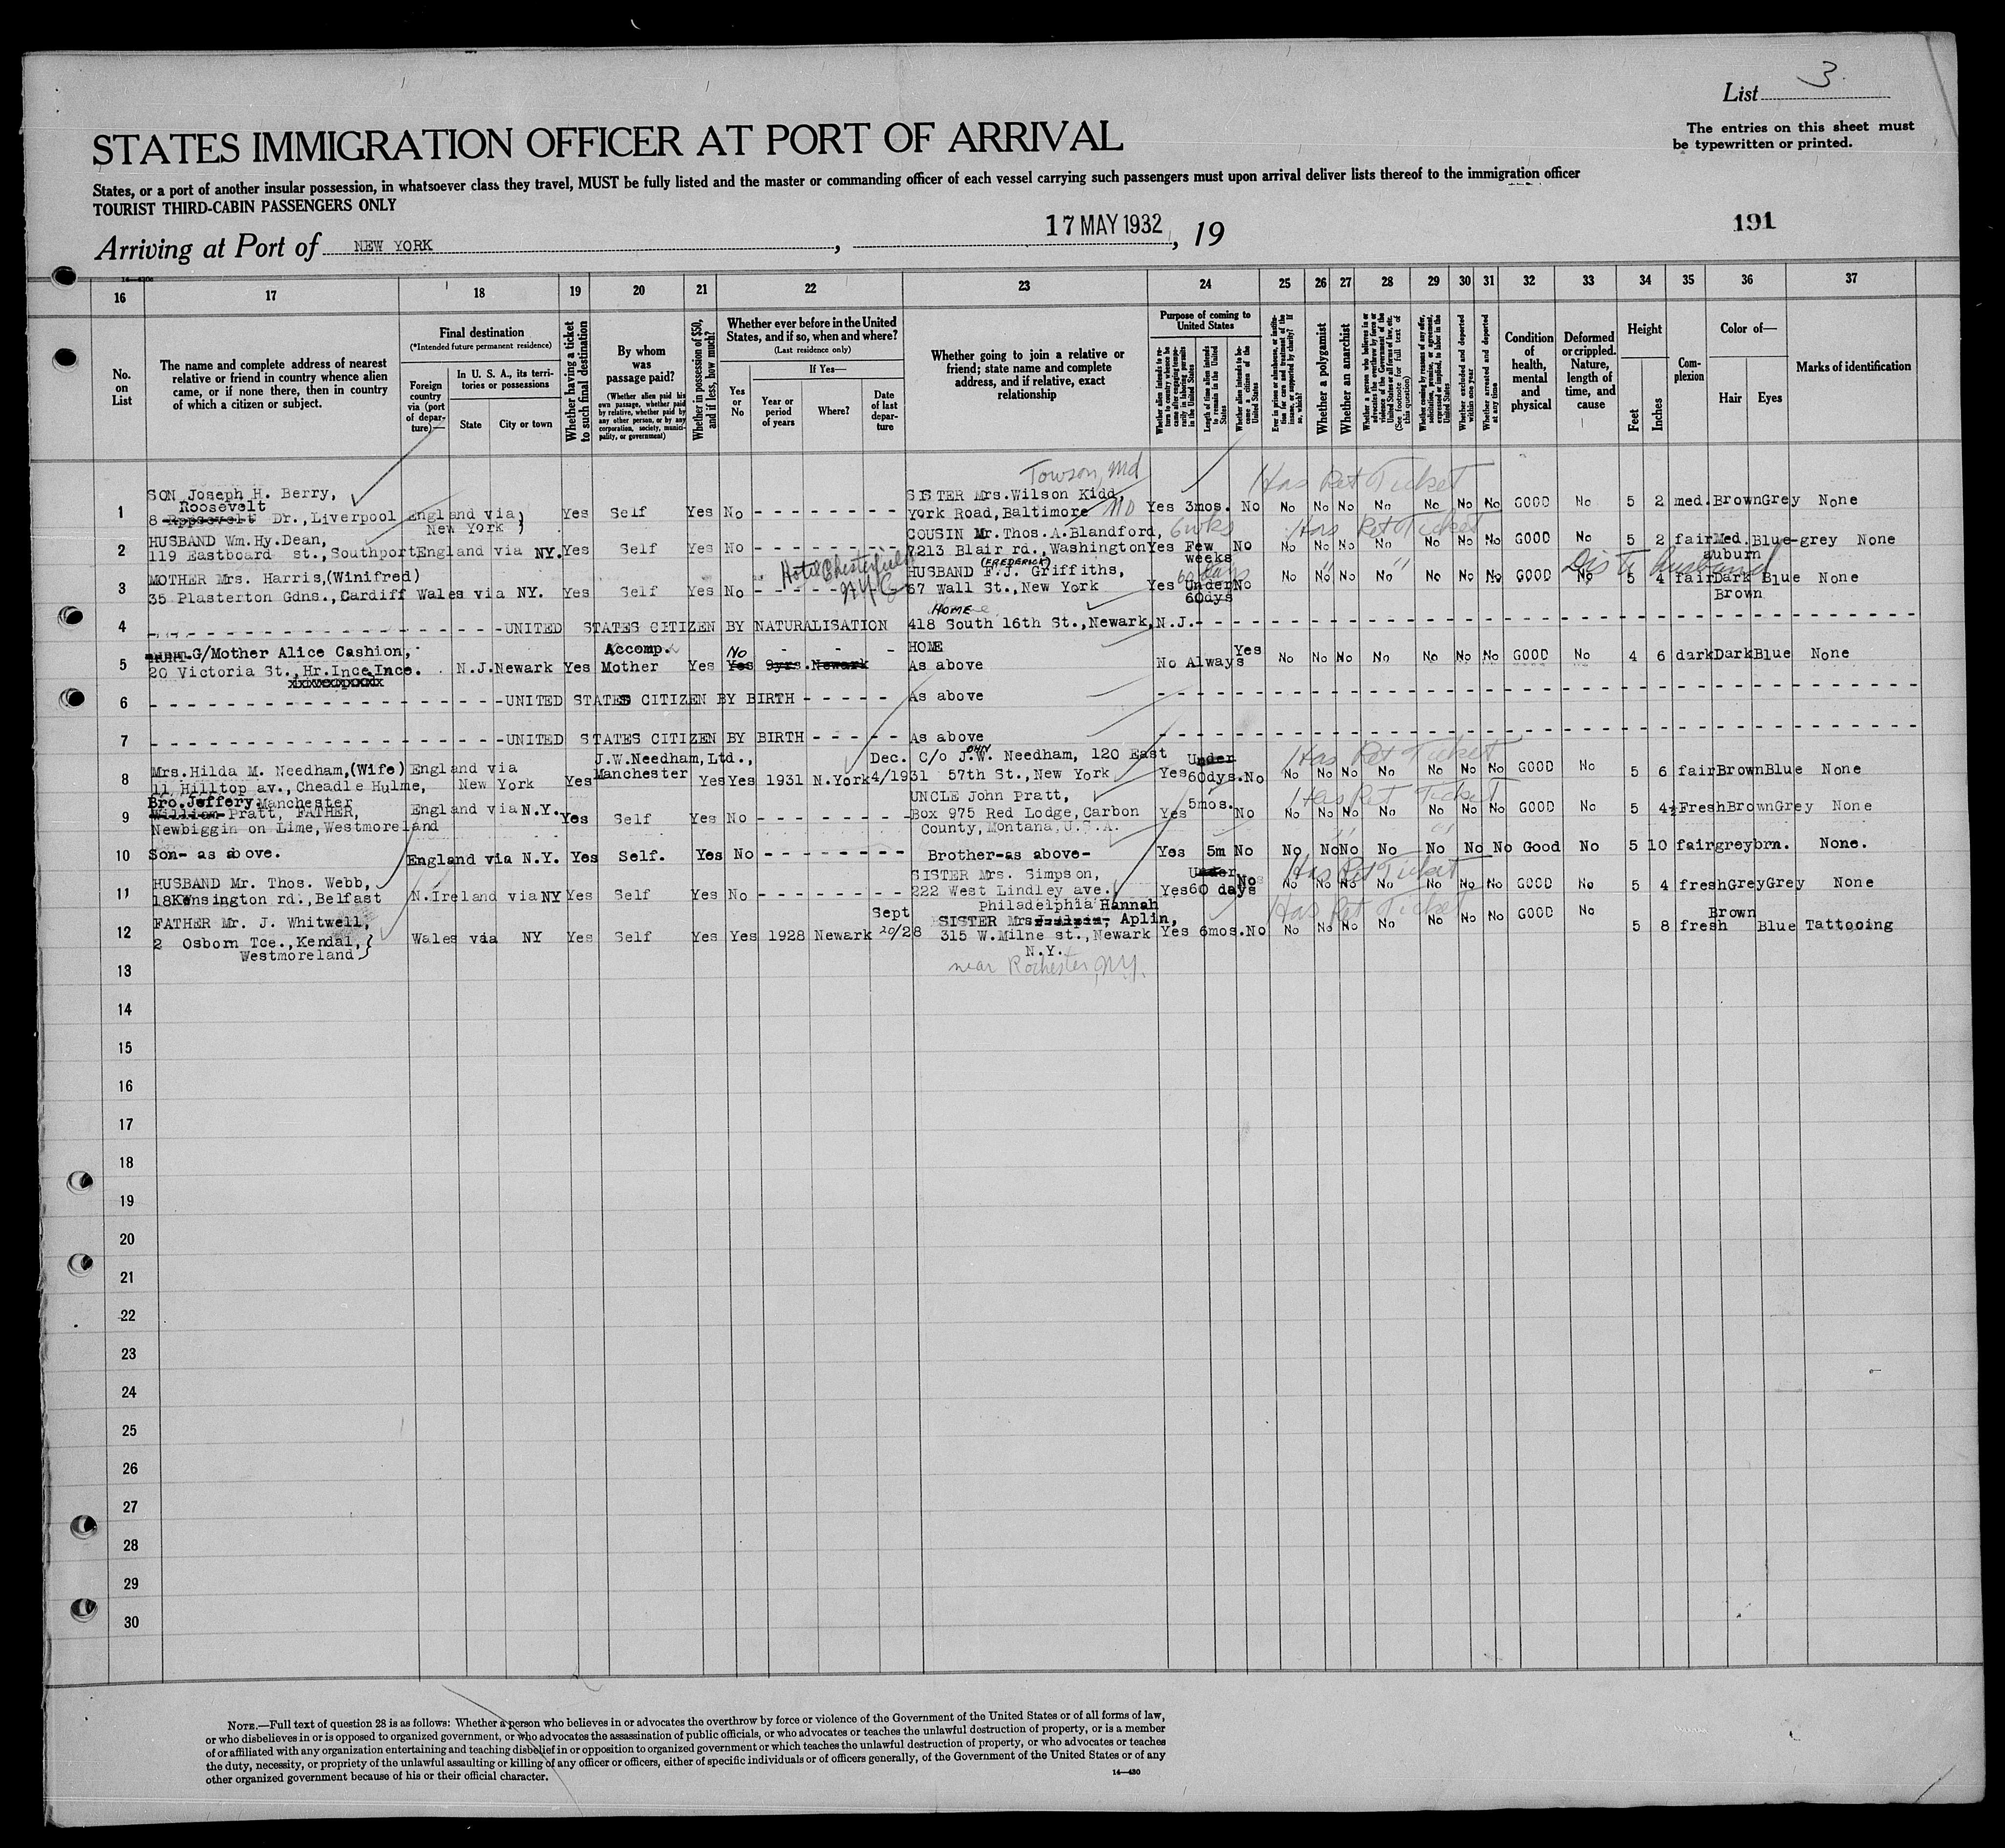 List 3
STATES IMMIGRATION OFFICER AT PORT OF ARRIVAL
The entries on this sheet must
be typewritten or printed.
States, or a port of another insular possession, in whatsoever class they travel, MUST be fully listed and the master or commanding officer of each vessel carrying such passengers must upon arrival deliver lists thereof to the immigration officer
TOURIST THIRD-CABIN PASSENGERS ONLY
Arriving at Port of NEW YORK, 17 MAY 1932, 19
191
16 17 18 19 20 21 22 23 24 25 26 27 28 29 30 31 32 33 34 35 36 37
No. on List
The name and complete address of nearest relative or friend in country whence alien came, or if none there, then in country of which a citizen or subject.
Final destination
(*Intended future permanent residence)
Foreign country via (port of departure)—
In U. S. A., its territories or possessions
State
City or town
Whether having a ticket to such final destination
By whom was passage paid?
(Whether alien paid his own passage, whether paid by relative, whether paid by any other person, or by any corporation, society, municipality, or government)
Whether in possession of $50, and if less, how much?
Whether ever before in the United States, and if so, when and where?
(Last residence only)
Yes or No
If Yes—
Year or period of years
Where?
Date of last departure
Whether going to join a relative or friend; state name and complete address, and if relative, exact relationship
Purpose of coming to United States
Whether alien intends to return to country whence he came after engaging temporarily in laboring pursuits in the United States
Length of time alien intends to remain in the United States
Whether alien intends to become a citizen of the United States
Ever in prison or almshouse, or institution for care and treatment of the insane, or supported by charity? If so, which?
Whether a polygamist
Whether an anarchist
Whether a person who believes in or advocates the overthrow by force or violence of the Government of the United States or all forms of law, etc. (See footnote for full text of this question)
Whether coming by reason of any offer, solicitation, promise, or agreement, expressed or implied, to labor in the United States
Whether excluded and deported within one year
Whether arrested and deported at any time
Condition of health, mental and physical
Deformed or crippled. Nature, length of time, and cause
Height
Feet
Inches
Complexion
Color of—
Hair
Eyes
Marks of identification
Towson, Md
Has Ret Ticket
1 SON Joseph H. Berry,
Roosevelt
8 Dr., Liverpool England via New York Yes Self Yes No - - - - - - - - SISTER Mrs. Wilson Kidd, York Road, Baltimore MD Yes 3mos. No No No No No No No No GOOD No 5 2 med. Brown Grey None
6 wks Has Ret Ticket
2 HUSBAND Wm. Hy. Dean,
119 Eastboard st., Southport England via NY. Yes Self Yes No - - - - - - - - COUSIN Mr. Thos. A. Blandford, 7213 Blair rd., Washington Yes Few weeks No No No No No No No No GOOD No 5 2 fair Med. auburn Blue-grey None
Hotel Chesterfield NYC
60 days
Dis to husband
3 MOTHER Mrs. Harris, (Winifred)
35 Plasterton Gdns., Cardiff Wales via NY. Yes Self Yes No - - - - - - HUSBAND F.J. (FREDERICK) Griffiths, 67 Wall St., New York Yes Under 60dys No No No No No No No No GOOD No 5 4 fair Dark Brown Blue None
HOME
4 - - - - - - - - UNITED STATES CITIZEN BY NATURALISATION 418 South 16th St., Newark, N.J. - - - - - - - -
5 G/Mother Alice Cashion,
20 Victoria St., Hr. Ince, Ince. N.J. Newark Yes Accomp. Mother Yes No Yes 9yrs. Newark - - - HOME As above No Always Yes No No No No No No No GOOD No 4 6 dark Dark Blue None
6 - - - - - - - - UNITED STATES CITIZEN BY BIRTH - - - - - As above - - - - - - - -
7 - - - - - - - - UNITED STATES CITIZEN BY BIRTH - - - - - As above - - - - - - - -
Has Ret Ticket
8 Mrs. Hilda M. Needham, (Wife)
11, Hilltop av., Cheadle Hulme, Manchester England via New York Yes J.W. Needham, Ltd., Manchester Yes Yes 1931 N.York Dec. 4/1931 C/o J.W. OHN Needham, 120 East 57th St., New York Yes Under 60dys. No No No No No No No No GOOD No 5 6 fair Brown Blue None
Has Ret Ticket
9 Bro. Jeffery
William Pratt, FATHER,
Newbiggin on Lime, Westmoreland England via N.Y. Yes Self Yes No - - - - - - - - UNCLE John Pratt, Box 975 Red Lodge, Carbon County, Montana, U.S.A. Yes 5mos. No No No No No No No No GOOD No 5 4½ Fresh Brown Grey None
10 Son- as above. England via N.Y. Yes Self. Yes No - - - - - - - - Brother-as above- Yes 5m No No No No No No No No Good No 5 10 fair grey brn. None.
Has Ret Ticket
11 HUSBAND Mr. Thos. Webb,
18 Kensington rd., Belfast N. Ireland via NY Yes Self Yes No - - - - - - - - SISTER Mrs. Simpson, 222 West Lindley ave., Philadelphia Yes Under 60 days No No No No No No No No GOOD No 5 4 fresh Grey Grey None
Has Ret Ticket
12 FATHER Mr. J. Whitwell,
2 Osborn Tce., Kendal, Westmoreland Wales via NY Yes Self Yes Yes 1928 Newark Sept 20/28 SISTER Mrs. Hannah Aplin, 315 W. Milne st., Newark N.Y. Yes 6mos. No No No No No No No No GOOD No 5 8 fresh Brown Blue Tattooing
near Rochester, N.Y.
13
14
15
16
17
18
19
20
21
22
23
24
25
26
27
28
29
30
NOTE.—Full text of question 28 is as follows: Whether a person who believes in or advocates the overthrow by force or violence of the Government of the United States or of all forms of law,
or who disbelieves in or is opposed to organized government, or who advocates the assassination of public officials, or who advocates or teaches the unlawful destruction of property, or is a member
of or affiliated with any organization entertaining and teaching disbelief in or opposition to organized government or which teaches the unlawful destruction of property, or who advocates or teaches
the duty, necessity, or propriety of the unlawful assaulting or killing of any officer or officers, either of specific individuals or of officers generally, of the Government of the United States or of any
other organized government because of his or their official character.
14—430